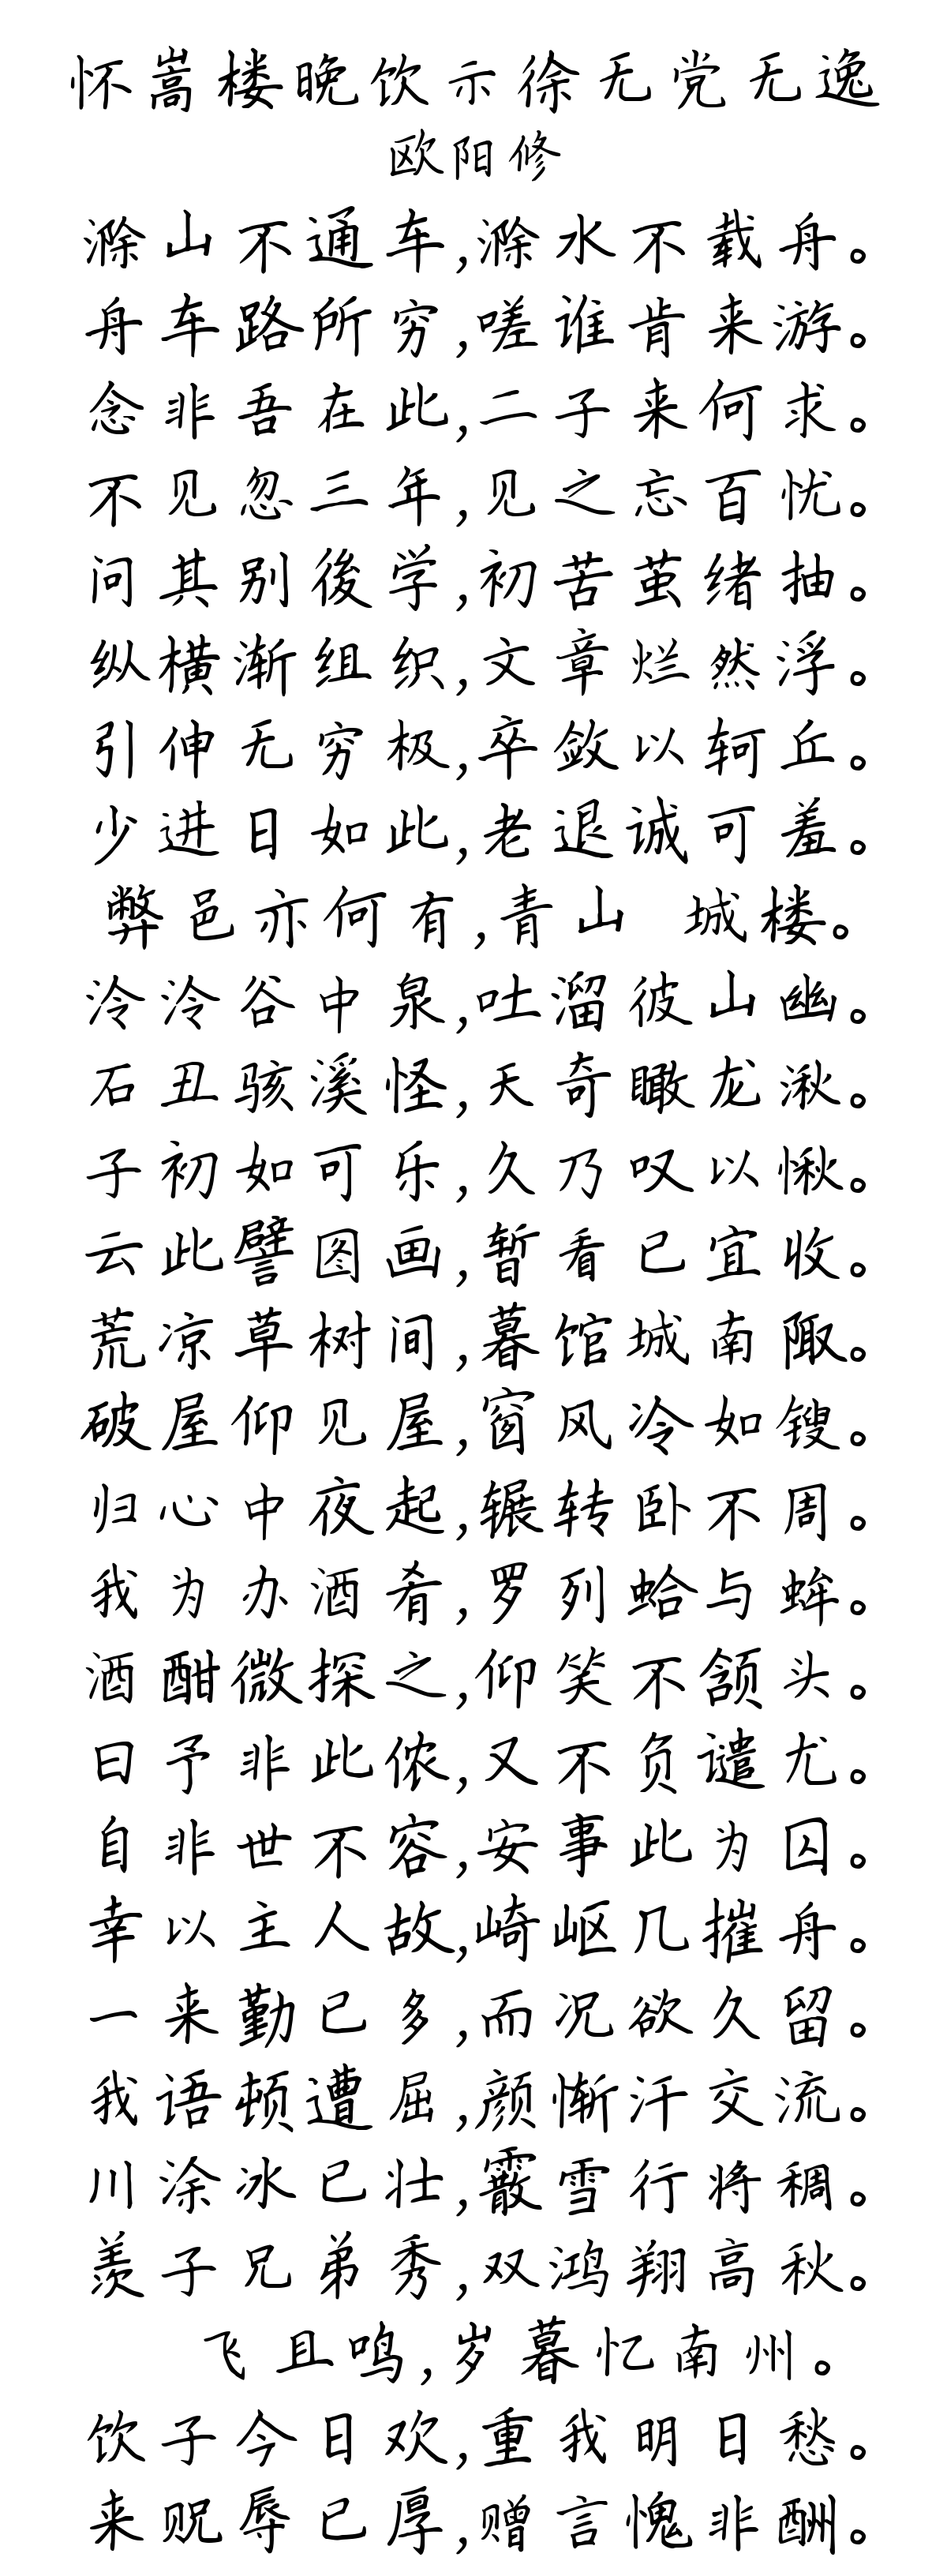 怀嵩楼晚饮示徐无党无逸
欧阳修
滁山不通车,滁水不载舟。
舟车路所穷,嗟谁肯来游。
念非吾在此,二子来何求。
不见忽三年,见之忘百忧。
问其别後学,初苦茧绪抽。
纵横渐组织,文章烂然浮。
引伸无穷极,卒敛以轲丘。
少进日如此,老退诚可羞。
弊邑亦何有,青山 城楼。
泠泠谷中泉,吐溜彼山幽。
石丑骇溪怪,天奇瞰龙湫。
子初如可乐,久乃叹以愀。
云此譬图画,暂看已宜收。
荒凉草树间,暮馆城南陬。
破屋仰见屋,窗风冷如锼。
归心中夜起,辗转卧不周。
我为办酒肴,罗列蛤与蛑。
酒酣微探之,仰笑不颔头。
曰予非此侬,又不负谴尤。
自非世不容,安事此为囚。
幸以主人故,崎岖几摧舟。
一来勤已多,而况欲久留。
我语顿遭屈,颜惭汗交流。
川涂冰已壮,霰雪行将稠。
羡子兄弟秀,双鸿翔高秋。
飞且鸣,岁暮忆南州。
饮子今日欢,重我明日愁。
来贶辱已厚,赠言愧非酬。